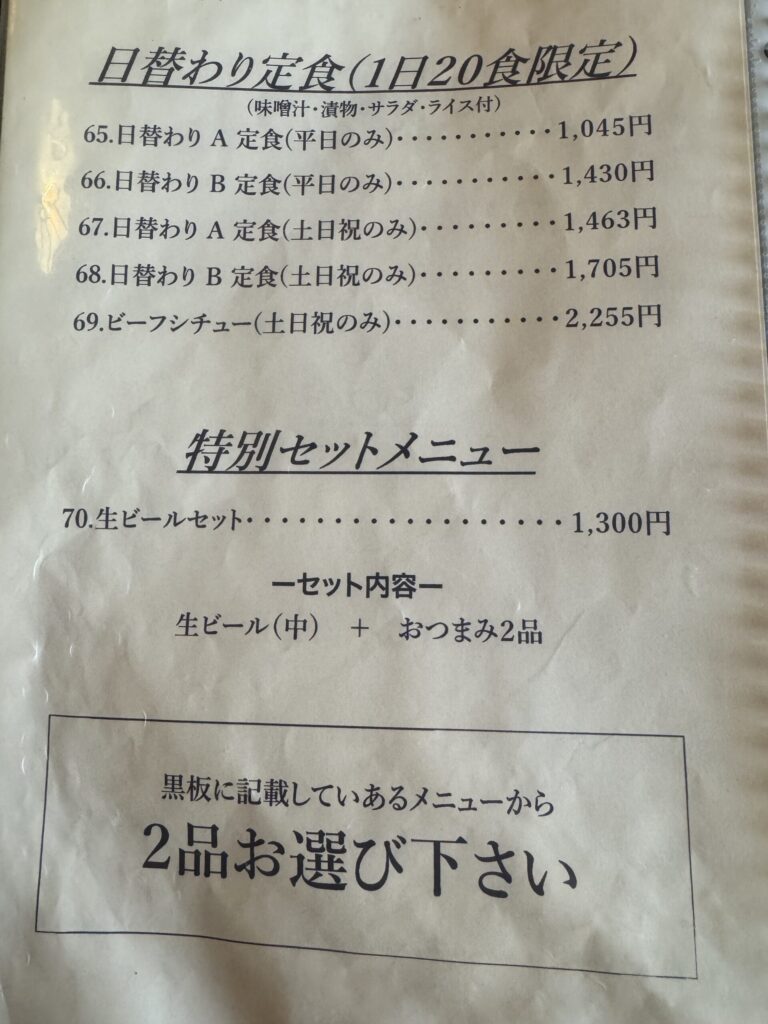 日替わり定食(1日20食限定)
(味噌汁・漬物・サラダ・ライス付)
65.日替わり A 定食(平日のみ)・・・・・・・・・・・1,045円
66.日替わり B 定食(平日のみ)・・・・・・・・・・・1,430円
67.日替わり A 定食(土日祝のみ)・・・・・・・・・1,463円
68.日替わり B 定食(土日祝のみ)・・・・・・・・・1,705円
69.ビーフシチュー(土日祝のみ)・・・・・・・・・・・2,255円
特別セットメニュー
70.生ビールセット・・・・・・・・・・・・・・・・・・・1,300円
ーセット内容ー
生ビール(中) + おつまみ2品
黒板に記載していあるメニューから
2品お選び下さい